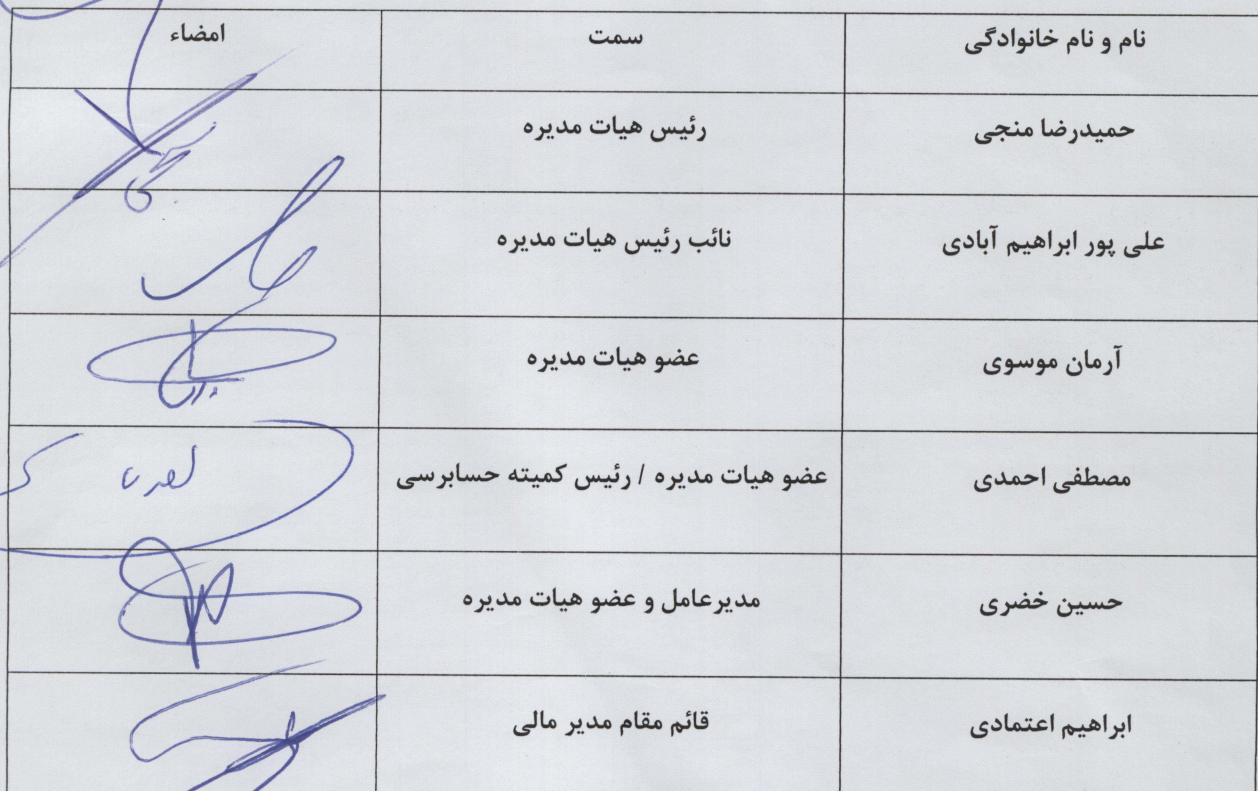 نام و نام خانوادگی سمت امضاء
حمیدرضا منجی رئیس هیات مدیره
علی پور ابراهیم آبادی نائب رئیس هیات مدیره
آرمان موسوی عضو هیات مدیره
مصطفی احمدی عضو هیات مدیره / رئیس کمیته حسابرسی
حسین خضری مدیرعامل و عضو هیات مدیره
ابراهیم اعتمادی قائم مقام مدیر مالی